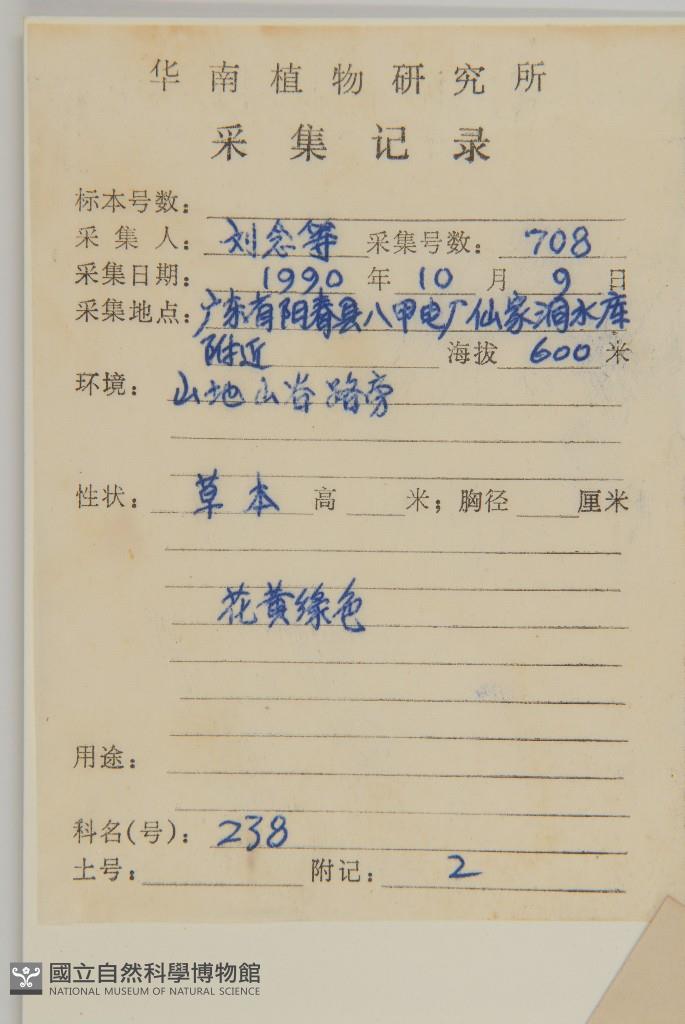 华南植物研究所
采集记录
标本号数：
采集人：刘念等 采集号数：708
采集日期：1990年10月9日
采集地点：广东省阳春县八甲电厂仙家洞水库
附近 海拔600米
环境：山地山谷路旁
性状：草本 高 米；胸径 厘米
花黄绿色
用途：
科名(号)：238
土号： 附记：2
國立自然科學博物館
NATIONAL MUSEUM OF NATURAL SCIENCE